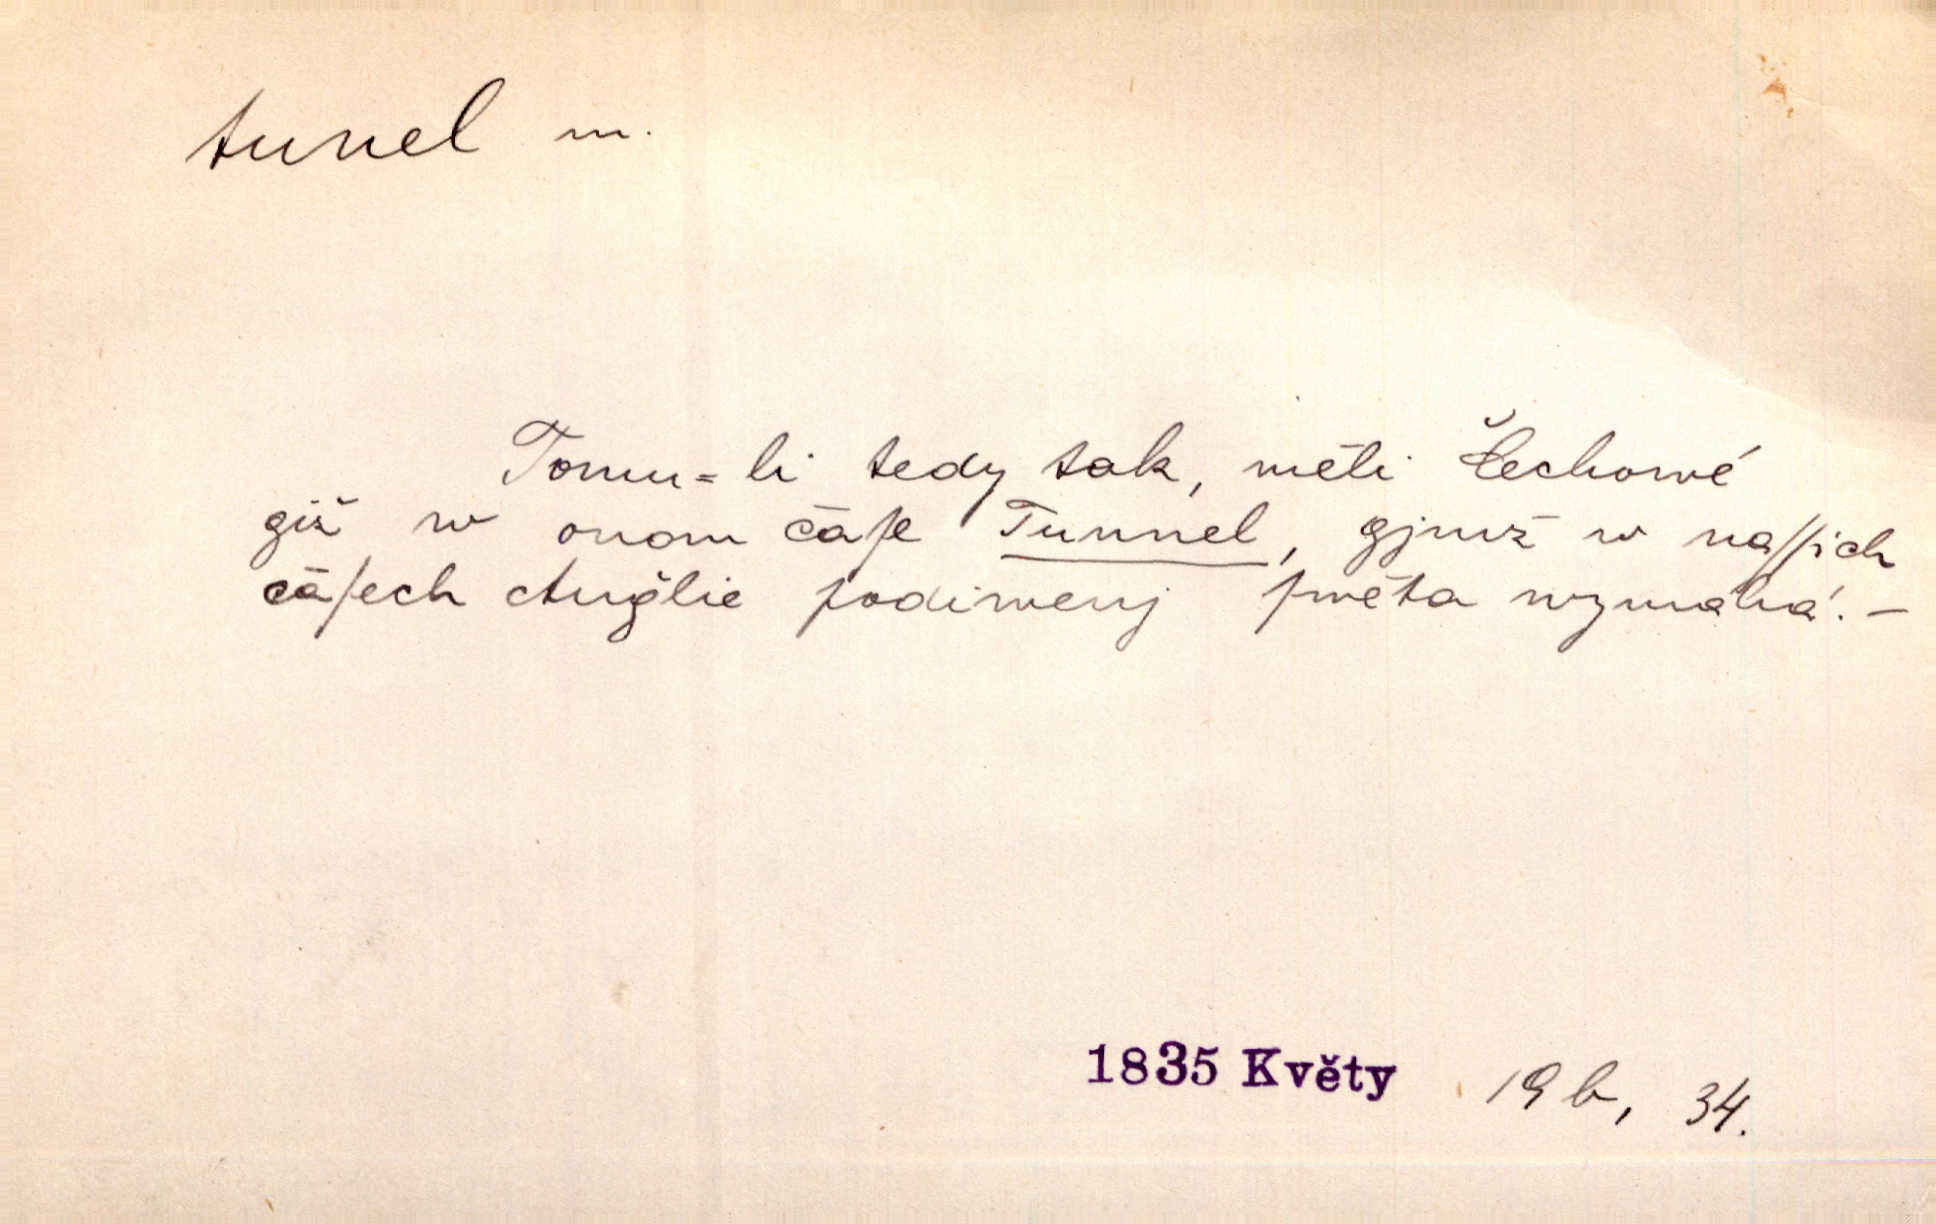 tunel m.
Tomu=li tedy tak, měli Čechowé
giž w onom čaſe Tunnel, gjmž w naſſich
čaſech Anğlie podiwenj ſwěta wymáhá. –
1835 Květy 19 b, 34.